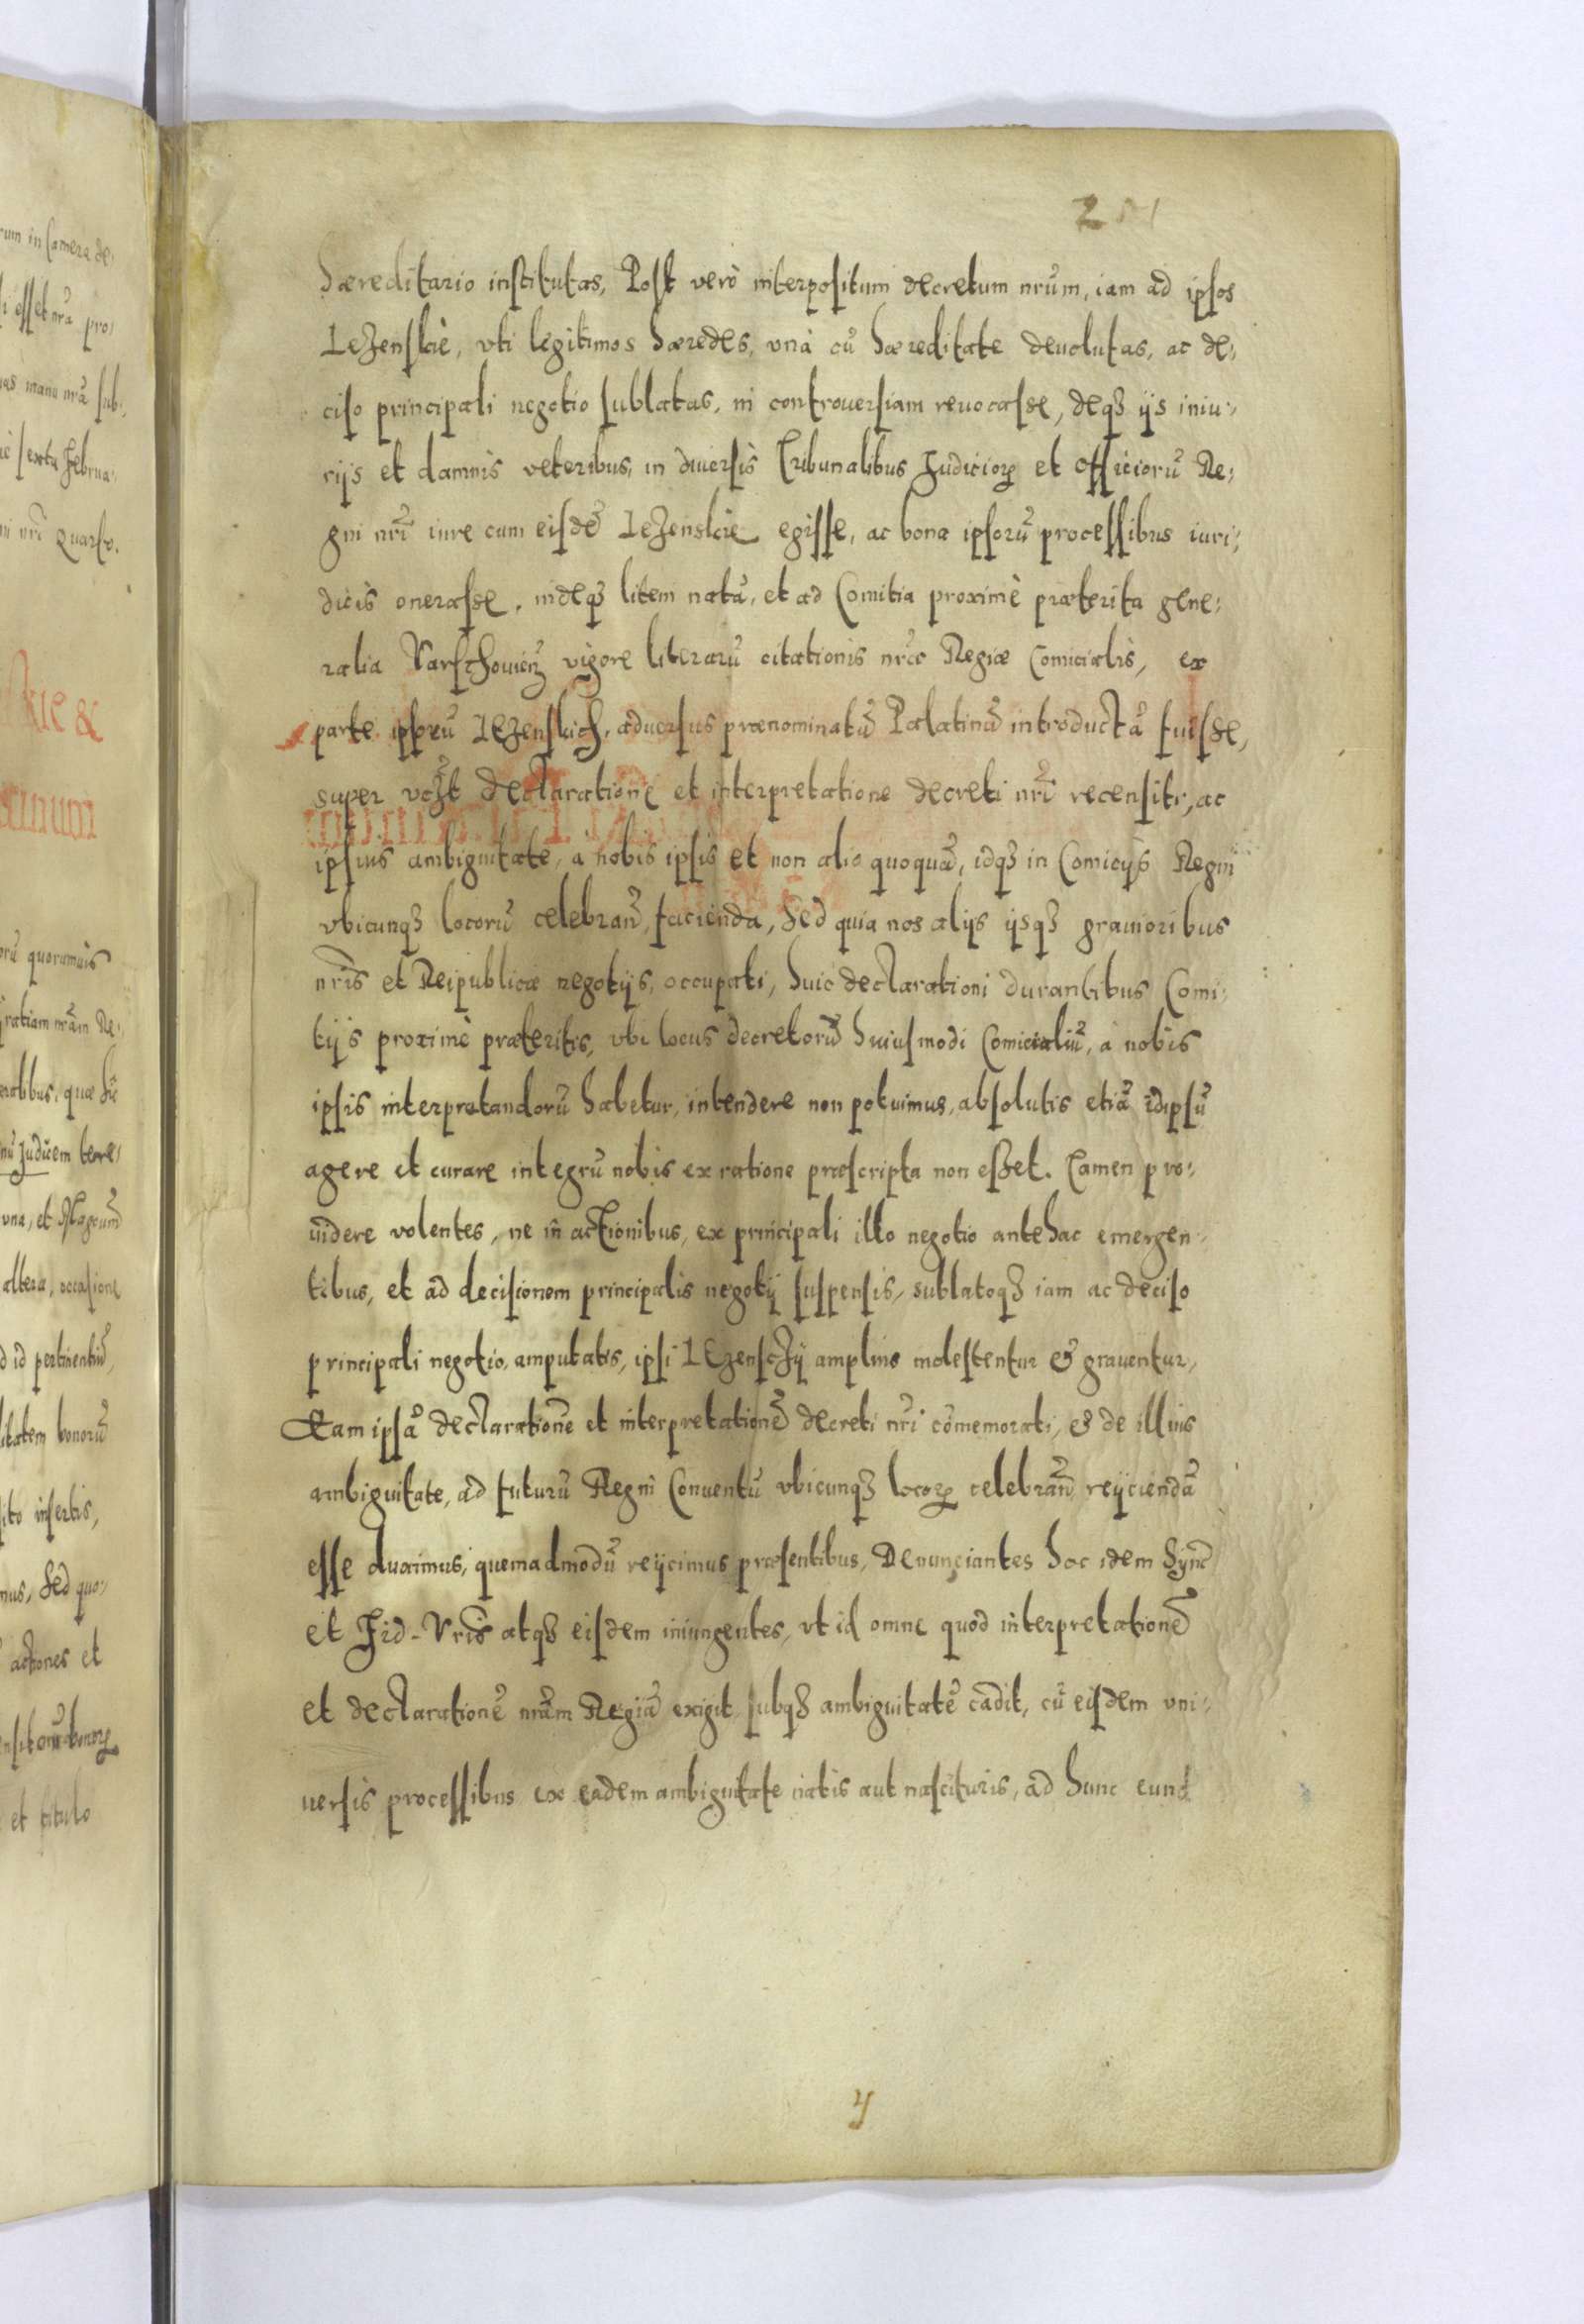 hæreditario institutas, Post verò interpositum decretum nrũm, iam ad ipsos
Iezenskie, vti legitimos hæredes, vnà cũ hæreditate deuolutas, ac de:
ciso principali negotio sublatas, in controuersiam reuocasse, deqз ijs iniu:
rijs et damnis veteribus, in diuersis Tribunalibus Judicioꝝ et Officiorũ Re:
gni nrĩ iure cum eisdẽ Iezenskie egisse, ac bona ipsorũ processibus iuri:
dicis onerasse, indeqз litem natã, et ad Comitia proximè præterita gene:
ralia Varschouien̄ vigore literarũ citationis nrẽ Regiæ Comicialis, ex
parte ipsorũ Iezenskich, aduersus prænominatũ Palatinũ introductã fuisse,
super declaratione et interpretatione decreti nrĩ recensiti, ac
ipsius ambiguitate, à nobis ipsis et non alio quoquã, idqз in Comicijs Regni
vbicunqз locorũ celebran̄, facienda, Sed quia nos alijs ijsqз grauioribus
nrĩs et Reipublicæ negotijs, occupati, huic declarationi durantibus Comi:
tijs proximè præteritis, vbi locus decretorũ huiusmodi Comicialiũ, à nobis
ipsis interpretandorũ habetur, intendere non potuimus, absolutis etiã idipsũ
agere et curare integrũ nobis ex ratione præscripta non esset. Tamen pro:
uidere volentes, ne in actionibus, ex principali illo negotio antehac emergen:
tibus, et ad decisionem principalis negotij suspensis, sublatoqз iam ac deciso
principali negotio, amputatis, ipsi Iezenscij amplius molestentur & grauentur,
Eam ipsã declarationẽ et interpretationẽ decreti nrĩ cõmemorati, & de illius
ambiguitate, ad futurũ Regni Conuentũ vbicunqз locoꝝ celebran̄ reijciendã
esse duximus, quemadmodũ reijcimus præsentibus, Denunciantes hoc idem Syn̄c
et Fid. Vrĩs atqз eisdem iniungentes, vt id omne quod interpretationẽ
et declarationẽ nrãm Regiã exigit, subqз ambiguitatẽ cadit, cũ eisdem vni:
uersis processibus ex eadem ambiguitate natis aut nascituris, ad hunc eund